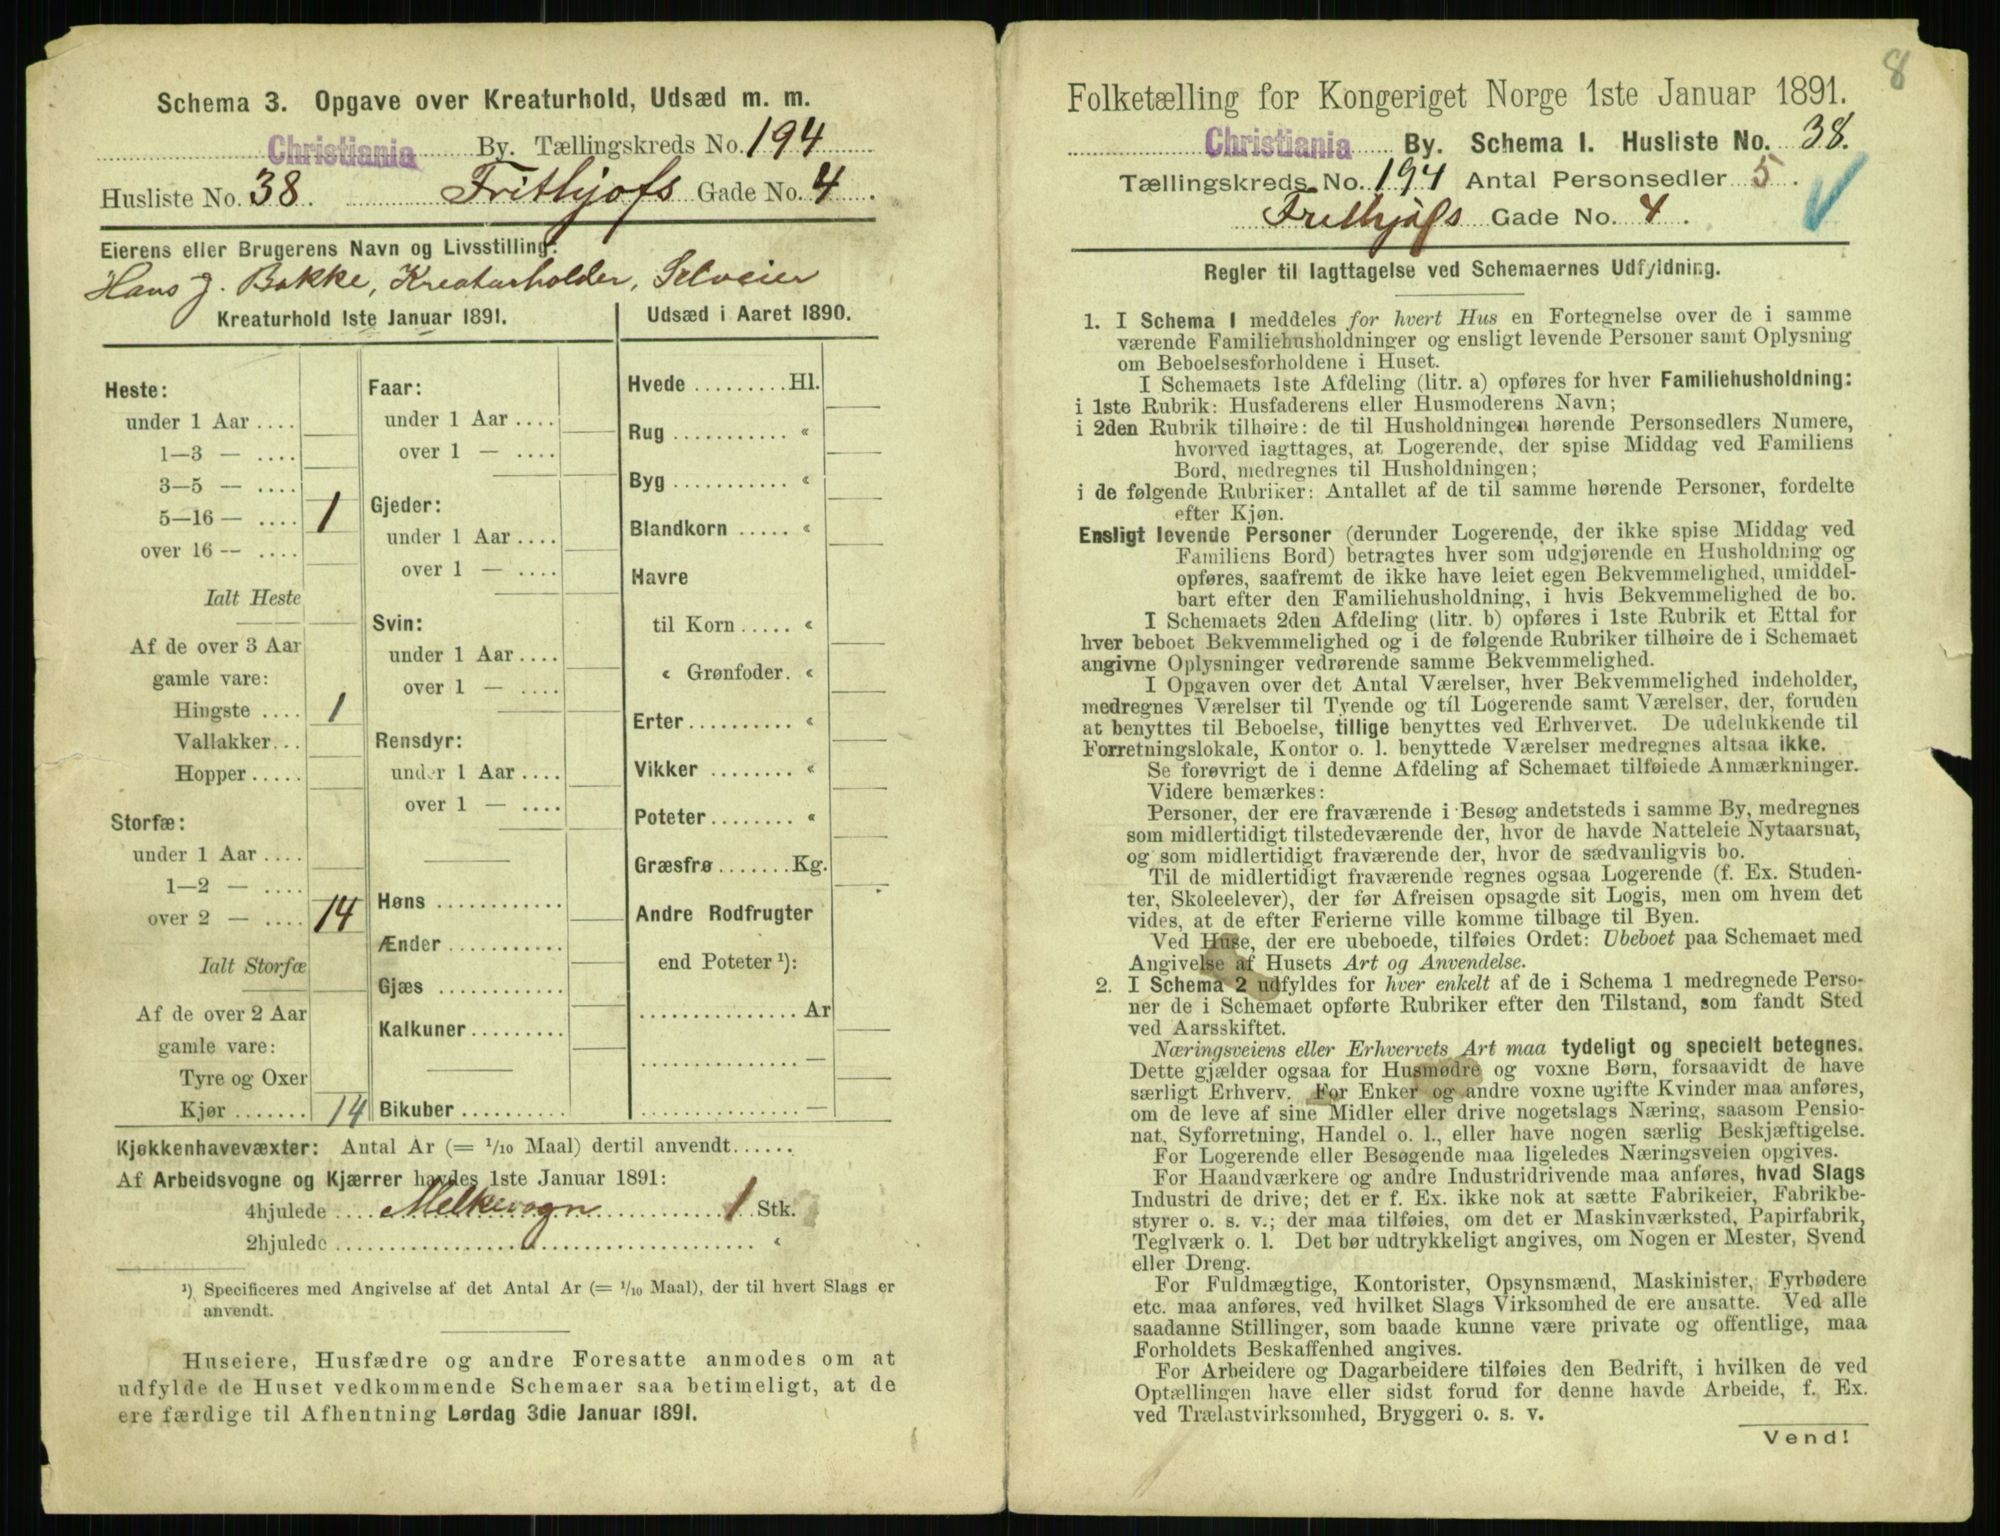 Schema 3. Opgave over Kreaturhold, Udsæd m. m.
Christiania By. Tællingskreds No. 194
Husliste No. 38. Frithjofs Gade No. 4.
Eierens eller Brugerens Navn og Livsstilling:
Hans J. Bakke, Kreaturholder, Selveier
Kreaturhold 1ste Januar 1891.
Heste:
under 1 Aar ....
1—3 — ....
3—5 — ....
5—16 — .... 1
over 16 — ....
Ialt Heste
Af de over 3 Aar
gamle vare:
Hingste .... 1
Vallakker...
Hopper.....
Storfæ:
under 1 Aar ....
1—2 — ....
over 2 — .... 14
Ialt Storfæ
Af de over 2 Aar
gamle vare:
Tyre og Oxer
Kjør ....... 14
Faar:
under 1 Aar ....
over 1 — ....
Gjeder:
under 1 Aar ....
over 1 — ....
Svin:
under 1 Aar ....
over 1 — ....
Rensdyr:
under 1 Aar ....
over 1 — ....
Høns ............
Ænder ...........
Gjæs ............
Kalkuner .........
Bikuber ..........
Udsæd i Aaret 1890.
Hvede .........Hl.
Rug ........... «
Byg ........... «
Blandkorn ..... «
Havre
til Korn ..... «
« Grønfoder. «
Erter ......... «
Vikker ........ «
Poteter........ «
Græsfrø .......Kg.
Andre Rodfrugter
end Poteter ¹):
............... Ar
............... —
............... —
Kjøkkenhavevæxter: Antal Ar (= 1/10 Maal) dertil anvendt......
Af Arbeidsvogne og Kjærrer havdes 1ste Januar 1891:
4hjulede .... Melkevogn ........ 1 Stk.
2hjulede .................... «
¹) Specificeres med Angivelse af det Antal Ar (= 1/10 Maal), der til hvert Slags er
anvendt.
Huseiere, Husfædre og andre Foresatte anmodes om at
udfylde de Huset vedkommende Schemaer saa betimeligt, at de
ere færdige til Afhentning Lørdag 3die Januar 1891.
8
Folketælling for Kongeriget Norge 1ste Januar 1891.
Christiania By. Schema I. Husliste No. 38.
Tællingskreds No. 194 Antal Personsedler 5.
Frithjofs Gade No. 4.
Regler til Iagttagelse ved Schemaernes Udfyldning.
1. I Schema 1 meddeles for hvert Hus en Fortegnelse over de i samme
værende Familiehusholdninger og ensligt levende Personer samt Oplysning
om Beboelsesforholdene i Huset.
I Schemaets 1ste Afdeling (litr. a) opføres for hver Familiehusholdning:
i 1ste Rubrik: Husfaderens eller Husmoderens Navn;
i 2den Rubrik tilhøire: de til Husholdningen hørende Personsedlers Numere,
hvorved iagttages, at Logerende, der spise Middag ved Familiens
Bord, medregnes til Husholdningen;
i de følgende Rubriker: Antallet af de til samme hørende Personer, fordelte
efter Kjøn.
Ensligt levende Personer (derunder Logerende, der ikke spise Middag ved
Familiens Bord) betragtes hver som udgjørende en Husholdning og
opføres, saafremt de ikke have leiet egen Bekvemmelighed, umiddel-
bart efter den Familiehusholdning, i hvis Bekvemmelighed de bo.
I Schemaets 2den Afdeling (litr. b) opføres i 1ste Rubrik et Ettal for
hver beboet Bekvemmelighed og i de følgende Rubriker tilhøire de i Schemaet
angivne Oplysninger vedrørende samme Bekvemmelighed.
I Opgaven over det Antal Værelser, hver Bekvemmelighed indeholder,
medregnes Værelser til Tyende og til Logerende samt Værelser, der, foruden
at benyttes til Beboelse, tillige benyttes ved Erhvervet. De udelukkende til
Forretningslokale, Kontor o. l. benyttede Værelser medregnes altsaa ikke.
Se forøvrigt de i denne Afdeling af Schemaet tilføiede Anmærkninger.
Videre bemærkes:
Personer, der ere fraværende i Besøg andetsteds i samme By, medregnes
som midlertidigt tilstedeværende der, hvor de havde Natteleie Nytaarsnat,
og som midlertidigt fraværende der, hvor de sædvanligvis bo.
Til de midlertidigt fraværende regnes ogsaa Logerende (f. Ex. Studen-
ter, Skoleelever), der før Afreisen opsagde sit Logis, men om hvem det
vides, at de efter Ferierne ville komme tilbage til Byen.
Ved Huse, der ere ubeboede, tilføies Ordet: Ubeboet paa Schemaet med
Angivelse af Husets Art og Anvendelse.
2. I Schema 2 udfyldes for hver enkelt af de i Schema 1 medregnede Perso-
ner de i Schemaet opførte Rubriker efter den Tilstand, som fandt Sted
ved Aarsskiftet.
Næringsveiens eller Erhvervets Art maa tydeligt og specielt betegnes.
Dette gjælder ogsaa for Husmødre og voxne Børn, forsaavidt de have
særligt Erhverv. For Enker og andre voxne ugifte Kvinder maa anføres,
om de leve af sine Midler eller drive nogetslags Næring, saasom Pensio-
nat, Syforretning, Handel o. l., eller have nogen særlig Beskjæftigelse.
For Logerende eller Besøgende maa ligeledes Næringsveien opgives.
For Haandværkere og andre Industridrivende maa anføres, hvad Slags
Industri de drive; det er f. Ex. ikke nok at sætte Fabrikeier, Fabrikbe-
styrer o. s. v.; der maa tilføies, om det er Maskinværksted, Papirfabrik,
Teglværk o. l. Det bør udtrykkeligt angives, om Nogen er Mester, Svend
eller Dreng.
For Fuldmægtige, Kontorister, Opsynsmænd, Maskinister, Fyrbødere
etc. maa anføres, ved hvilket Slags Virksomhed de ere ansatte. Ved alle
saadanne Stillinger, som baade kunne være private og offentlige, maa
Forholdets Beskaffenhed angives.
For Arbeidere og Dagarbeidere tilføies den Bedrift, i hvilken de ved
Optællingen have eller sidst forud for denne havde Arbeide, f. Ex.
ved Trælastvirksomhed, Bryggeri o. s. v.
Vend!